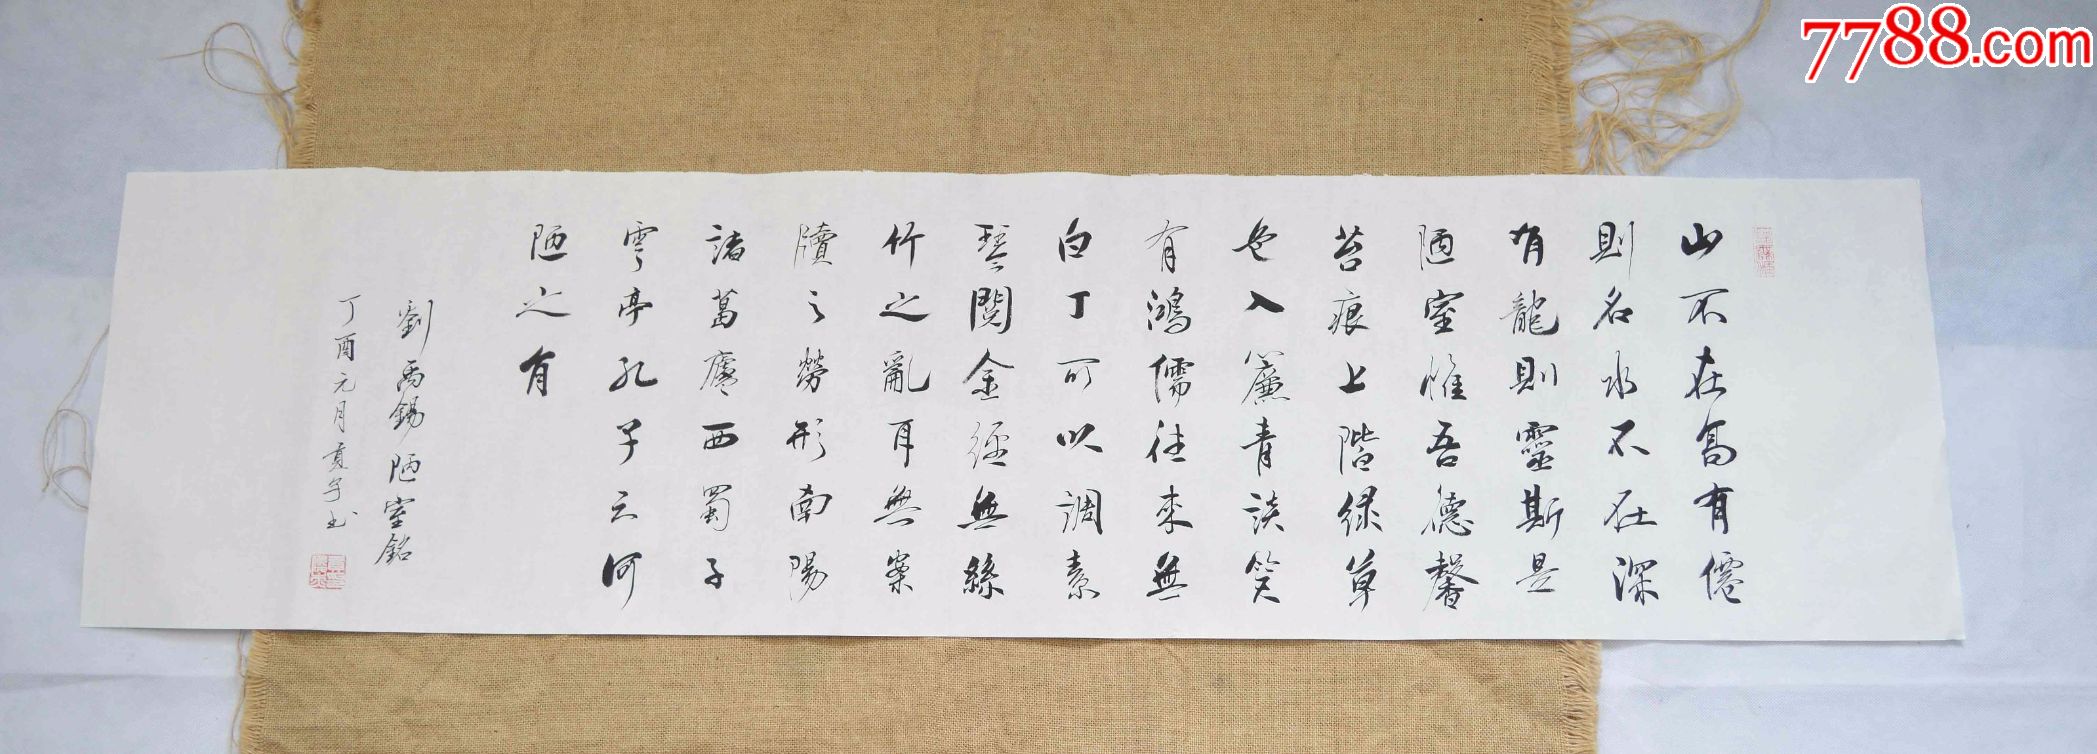 7788.com
山不在高有僊
則名水不在深
有龍則靈斯是
陋室惟吾德馨
苔痕上階綠草
色入簾青談笑
有鴻儒往來無
白丁可以調素
琴閱金經無絲
竹之亂耳無案
牘之勞形南陽
諸葛廬西蜀子
雲亭孔子云何
陋之有
劉禹錫陋室銘
丁酉元月